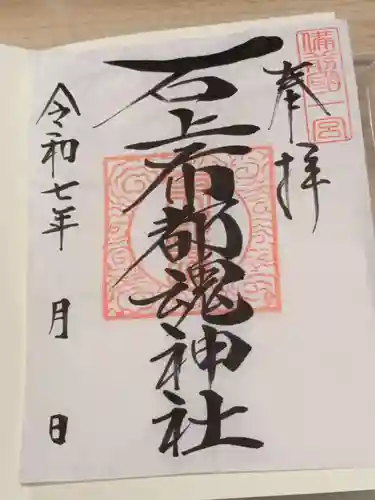 備前一宮
奉拝
石上布都魂神社
令和七年 月 日